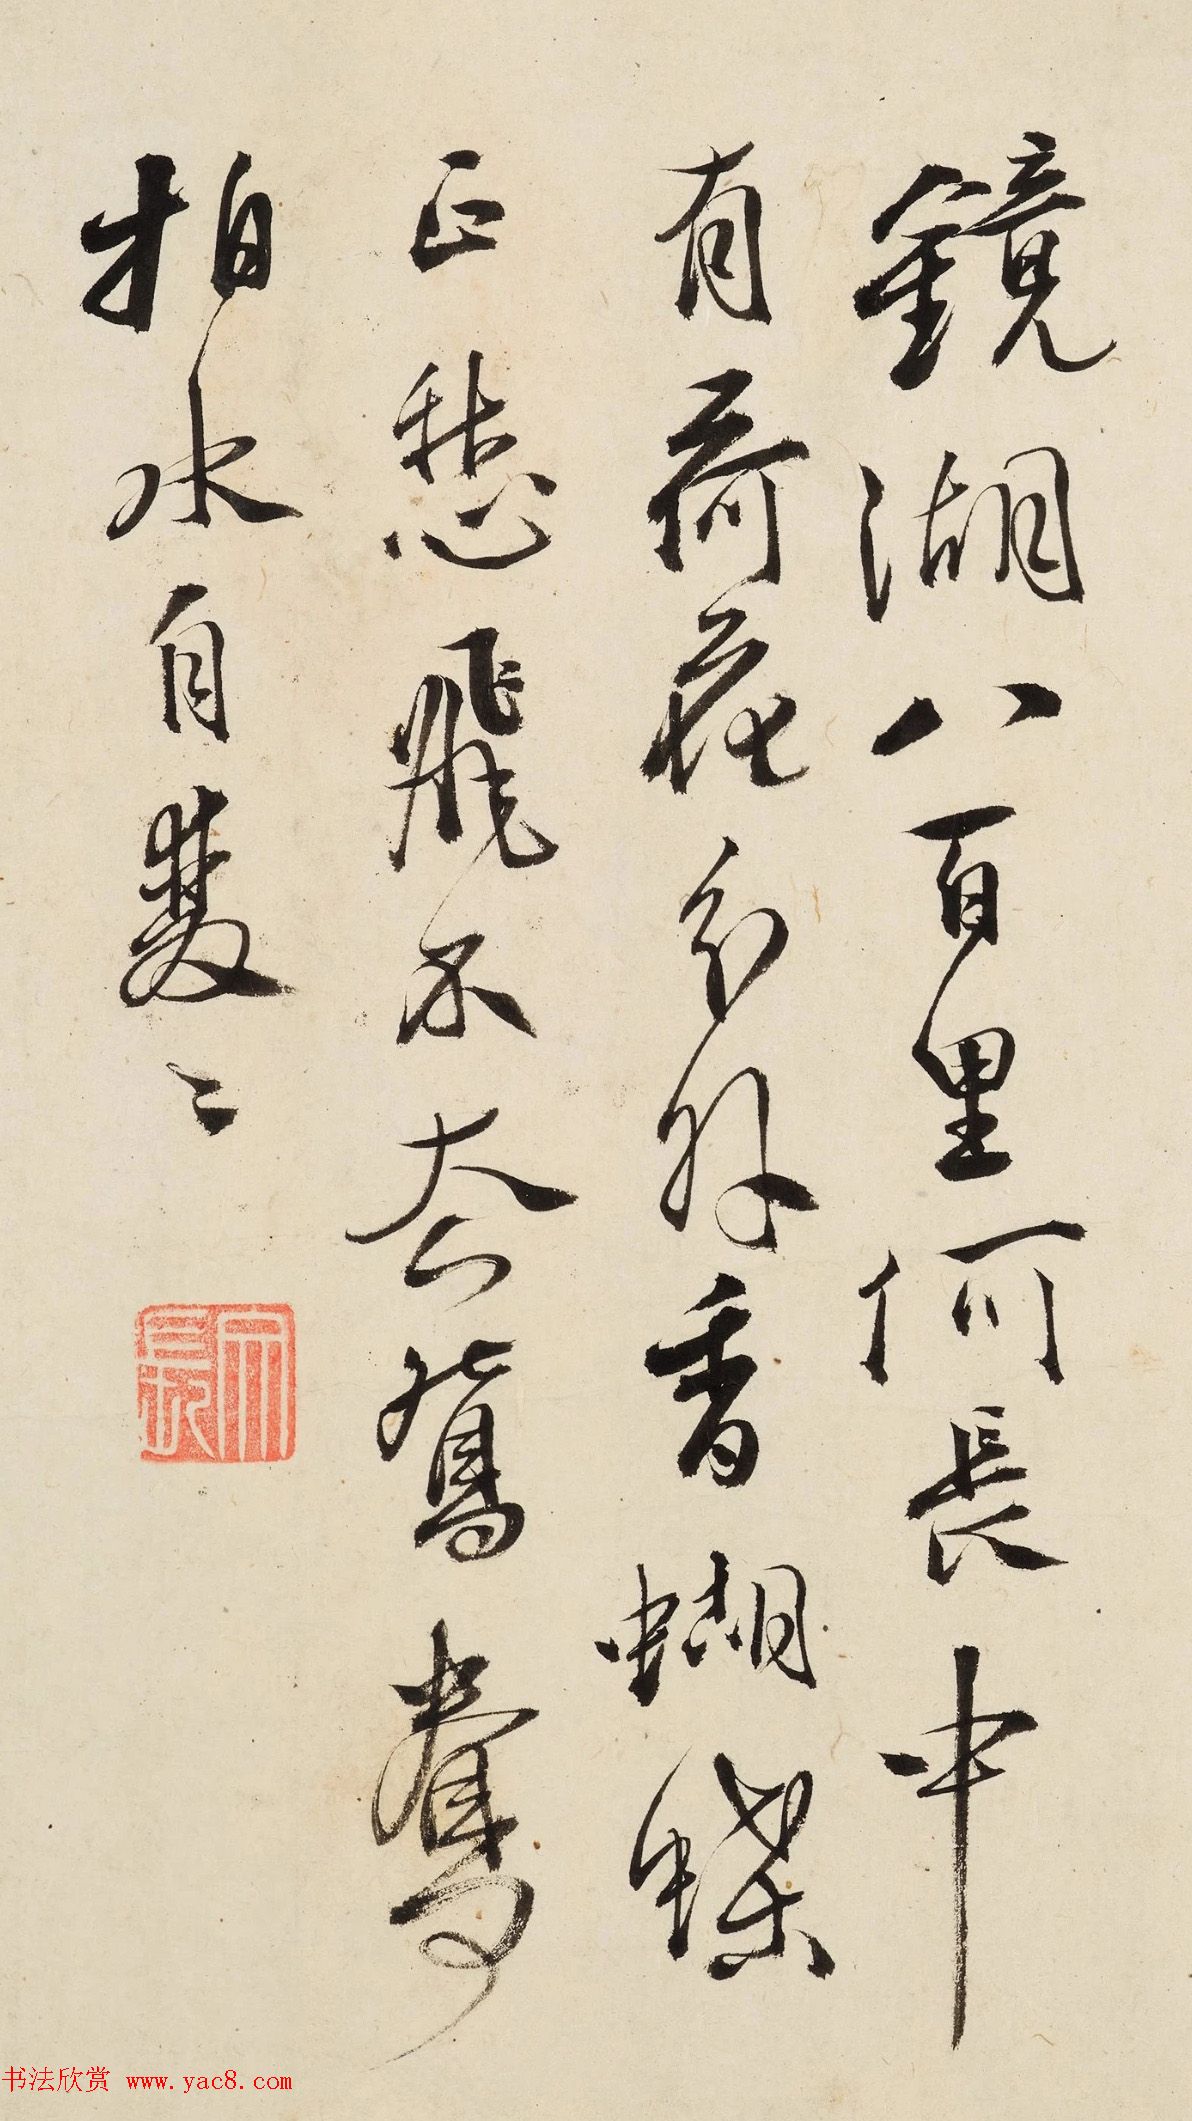 鏡湖八百里何長中
有荷花分外香蝴蝶
正愁飛不去鴛鴦
拍水自雙〻
天池
书法欣赏 www.yac8.com